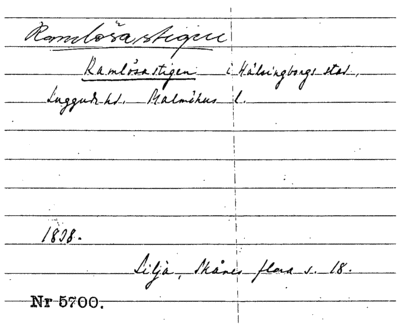 Ramlösastigen
Ramlösastigen i Hälsingborgs stad,
Luggude hd. Malmöhus l.
1838.
Lilja, Skånes flora s. 18.
Nr 5700.